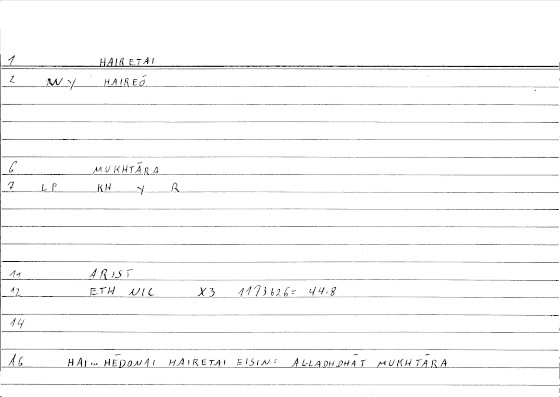 1 HAIRETAI
2 WY HAIREŌ
6 MUKHTĀRA
7 LP KH Y R
11 ARIST
12 ETH NIC X3 1173b26= 44.8
14
16 HAI... HĒDONAI HAIRETAI EISIN: ALLADHDHĀT MUKHTĀRA